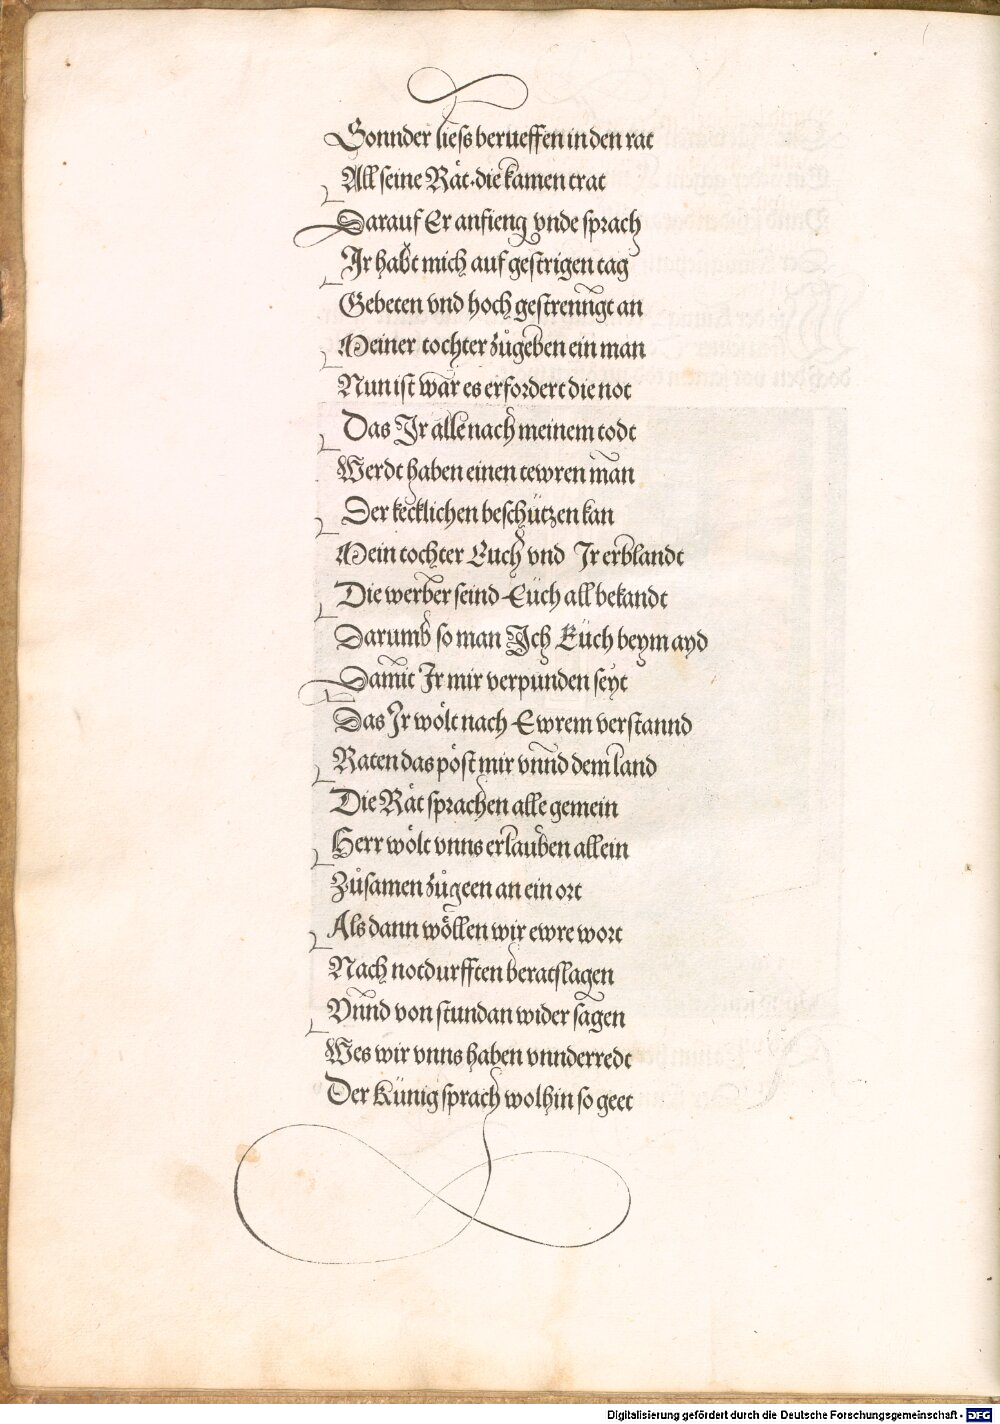 Sonnder liess berueffen in den rat
All seine Rät die kamen trat
Darauf Er anfieng vnde sprach
Ir habt mich auf gestrigen tag
Gebeten vnd hoch gestrenngt an
Meiner tochter zůgeben ein man
Nun ist war es erfordert die not
Das Ir alle nach meinem todt
Werdt haben einen tewren man
Der kecklichen beschützen kan
Mein tochter Euch vnd Ir erblandt
Die werber seind Eüch all bekandt
Darumb so man Ich Eüch beym ayd
Damit Ir mir verpunden seyt
Das Ir wölt nach Ewrem verstannd
Raten das pöst mir vnnd dem land
Die Rät sprachen alle gemein
Herr wölt vnns erlauben allein
Zůsamen zůgeen an ein ort
Als dann wöllen wir ewre wort
Nach notdurfften beratslagen
Vnnd von stundan wider sagen
Wes wir vnns haben vnnderredt
Der Künig sprach wolhin so geet
Digitalisierung gefördert durch die Deutsche Forschungsgemeinschaft - DFG